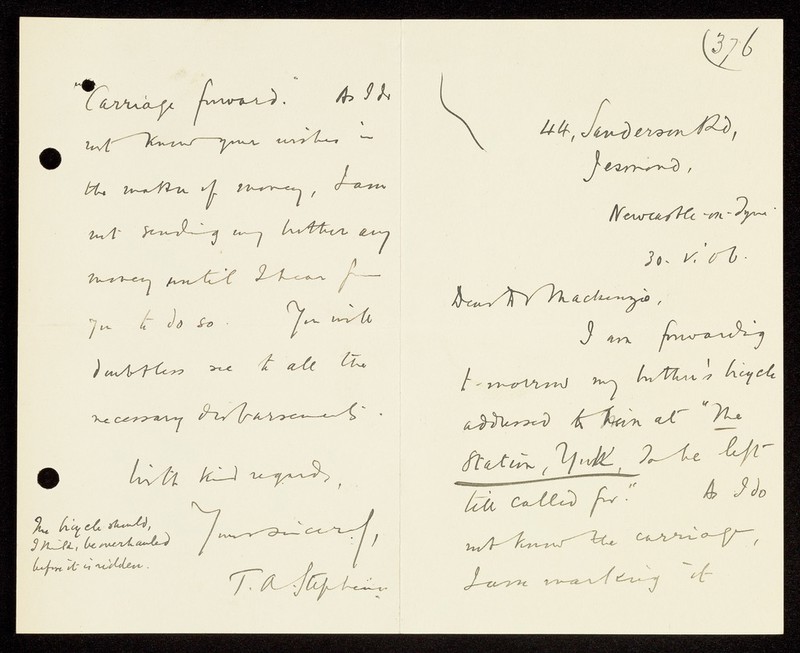 (376
44, Sanderson Rd,
Jesmond,
Newcastle-on-Tyne
30. V. 06.
Dear Dr Mackenzie,
I am forwarding
to-morrow my brother's bicycle
addressed to him at "The
Station, York, To be left
till called for." As I do
not know the carriage,
I am marking it
"Carriage forward." As I do
not know your wishes in
the matter of money, I am
not sending my brother any
money until I hear from
you to do so. You will
doubtless see to all the
necessary disbursements.
With kind regards,
Yours sincerely,
T. A. Stephens
The bicycle should,
I think, be overhauled
before it is ridden.